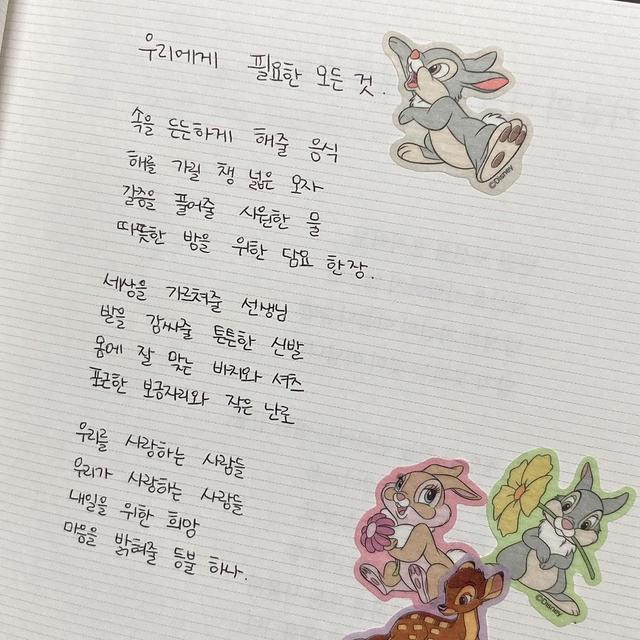 우리에게 필요한 모든 것.
속을 든든하게 해줄 음식
해를 가릴 챙 넓은 모자
갈증을 풀어줄 시원한 물
따뜻한 밤을 위한 담요 한 장.
세상을 가르쳐줄 선생님
발을 감싸줄 튼튼한 신발
몸에 잘 맞는 바지와 셔츠
포근한 보금자리와 작은 난로
우리를 사랑하는 사람들
우리가 사랑하는 사람들
내일을 위한 희망
마음을 밝혀줄 등불 하나.
©Disney
©Disney